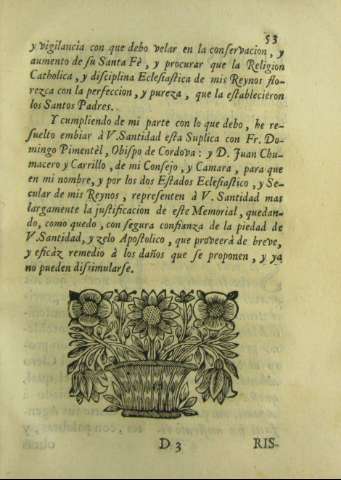 53
y vigilancia con que debo velar en la conservacion, y
aumento de ſu Santa Fè, y procurar que la Religion
Catholica, y diſciplina Ecleſiaſtica de mis Reynos flo-
rezca con la perfeccion, y pureza, que la eſtablecieron
los Santos Padres.
Y cumpliendo de mi parte con lo que debo, he re-
ſuelto embiar à V. Santidad eſta Suplica con Fr. Do-
mingo Pimentèl, Obiſpo de Cordova: y D. Juan Chu-
macero y Carrillo, de mi Conſejo, y Camara, para que
en mi nombre, y por los dos Eſtados Ecleſiaſtico, y Se-
cular de mis Reynos, repreſenten à V. Santidad mas
largamente la juſtificacion de eſte Memorial, quedan-
do, como quedo, con ſegura confianza de la piedad de
V. Santidad, y zelo Apoſtolico, que proveerà de breve,
y eficàz remedio à los daños que ſe proponen, y ya
no pueden diſsimularſe.
D 3
RIS-